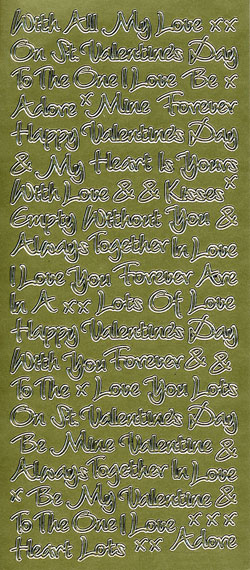 With All My Love x x
On St. Valentine's Day
To The One I Love Be x
Adore x Mine Forever
Happy Valentine's Day
& My Heart Is Yours
With Love & & Kisses x
Empty Without You &
Always Together In Love
I Love You Forever Are
In A x x Lots Of Love
Happy Valentine's Day
With You Forever & &
To The x Love You Lots
On St. Valentine's Day
Be Mine Valentine &
Always Together In Love
x Be My Valentine &
To The One I Love x x x
Heart Lots x x Adore